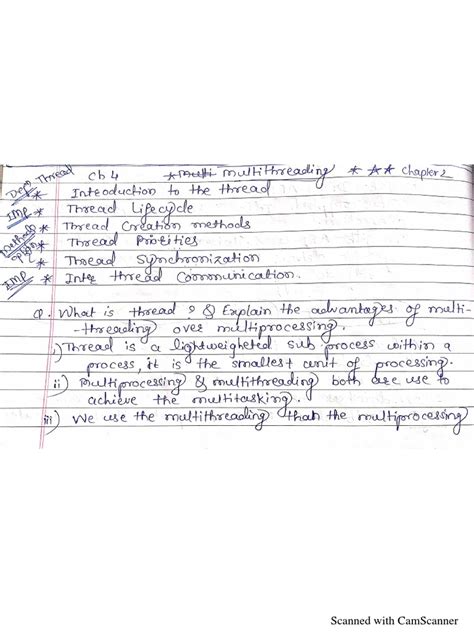 Ch 4 multithreading * ** Chapter 2
Thread
* Introduction to the thread
IMP * Thread Lifecycle
* Thread Creation methods
* Thread Priorities
* Thread Synchronization
IMP * Inter thread Communication.
Q. What is thread ? & Explain the advantages of multi-
-threading over multiprocessing.
i) Thread is a lightweighted sub process within a
process, it is the smallest unit of processing.
ii) Multiprocessing & multithreading both are use to
achieve the multitasking.
iii) We use the multithreading than the multiprocessing
Scanned with CamScanner